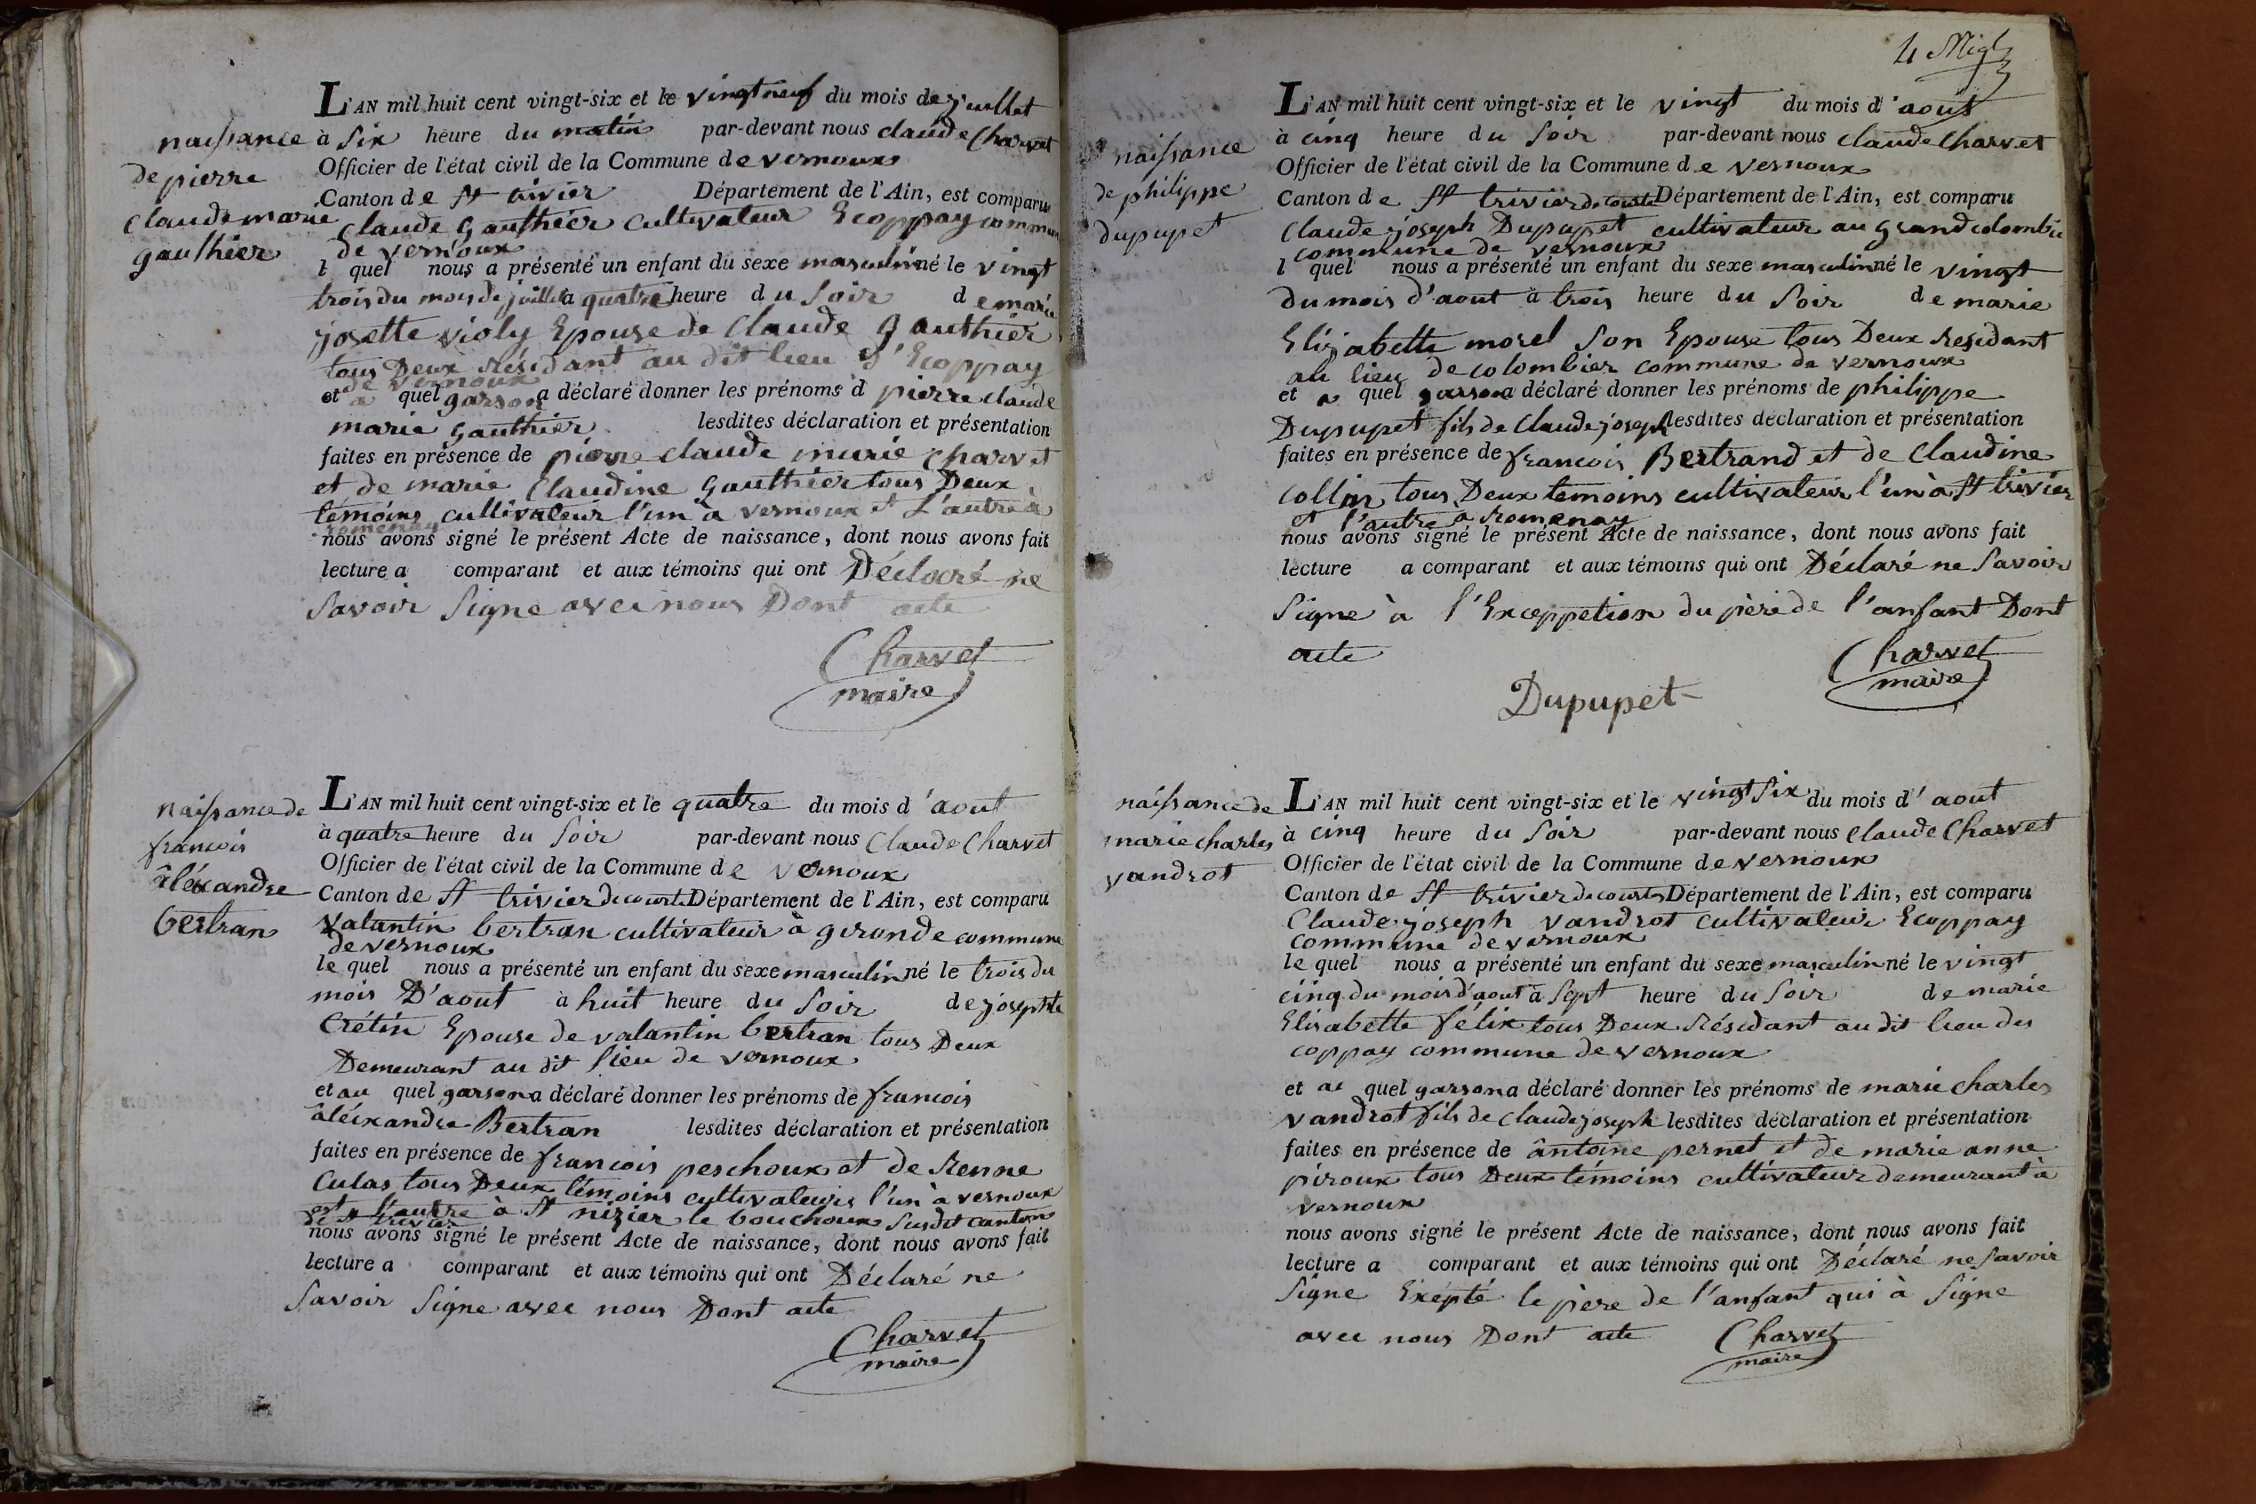 naissance
de pierre
claude marie
gauthier
L'AN mil huit cent vingt-six et le vingt neuf du mois de juillet
à six heure du matin par-devant nous claude Charvet
Officier de l'état civil de la Commune de vernoux
Canton de st trivier Département de l'Ain, est comparu
claude Gauthier cultivateur Ecoppay commune
de vernoux
l quel nous a présenté un enfant du sexe masculin né le vingt
trois du mois de juillet à quatre heure du soir de marie
josette violy Epouse de Claude gauthier
tous Deux Résidant au dit lieu d'Ecoppay
de vernoux
et a quel garson a déclaré donner les prénoms d pierre claude
marie Gauthier lesdites déclaration et présentation
faites en présence de pierre claude marie Charvet
et de marie Claudine Gauthier tous Deux
témoins cultivateur l'un à vernoux et L'autre à
romenay
nous avons signé le présent Acte de naissance, dont nous avons fait
lecture a comparant et aux témoins qui ont Déclaré ne
savoir signe avec nous Dont acte
Charvet
maire
naissance de
francois
âléxandre
bertran
L'AN mil huit cent vingt-six et le quatre du mois d'aout
à quatre heure du soir par-devant nous Claude Charvet
Officier de l'état civil de la Commune de vernoux
Canton de st trivier de courte Département de l'Ain, est comparu
valantin bertran cultivateur à gironde commune
de vernoux
le quel nous a présenté un enfant du sexe masculin né le trois du
mois D'aout à huit heure du soir de josephte
Crétin Epouse de valantin bertran tous Deux
Demeurant au dit lieu de vernoux
et au quel garson a déclaré donner les prénoms de francois
âléixandre Bertran lesdites déclaration et présentation
faites en présence de francois peschoux et de Renne
Culas tous Deux témoins cultivateurs l'un à vernoux
et l'autre à st nizier le bouchoux susdit canton
de st trivier
nous avons signé le présent Acte de naissance, dont nous avons fait
lecture a comparant et aux témoins qui ont Déclaré ne
savoir signe avec nous Dont acte
Charvet
maire
4
naissance
de philippe
dupupet
L'AN mil huit cent vingt-six et le vingt du mois d'aout
à cinq heure du soir par-devant nous claude Charvet
Officier de l'état civil de la Commune de vernoux
Canton de st trivier de courte Département de l'Ain, est comparu
Claude joseph Dupupet cultivateur au grand colombié
commune de vernoux
l quel nous a présenté un enfant du sexe masculin né le vingt
du mois d'aout à trois heure du soir de marie
Elizabette morel son Epouse tous Deux residant
au lieu de colombier commune de vernoux
et a quel garson a déclaré donner les prénoms de philippe
Dupupet fils de Claude joseph lesdites déclaration et présentation
faites en présence de francois Bertrand et de Claudine
collin tous Deux temoins cultivateur l'un à st trivier
et l'autre a Romenay
nous avons signé le présent Acte de naissance, dont nous avons fait
lecture a comparant et aux témoins qui ont Déclaré ne savoir
signe à l'Exceppetion du père de l'anfant Dont
acte
Charvet
maire
Dupupet
naissance de
marie charles
vandrot
L'AN mil huit cent vingt-six et le vingt six du mois d'aout
à cinq heure du soir par-devant nous Claude Charvet
Officier de l'état civil de la Commune de vernoux
Canton de st trivier de courtes Département de l'Ain, est comparu
Claude joseph vandrot cultivateur Ecoppay
commune de vernoux
le quel nous a présenté un enfant du sexe masculin né le vingt
cinq du mois d'aout à sept heure du soir de marie
Elisabette félix tous Deux Résidant au dit lieu des
coppay commune de vernoux
et au quel garson a déclaré donner les prénoms de marie charles
vandrot fils de claude joseph lesdites déclaration et présentation
faites en présence de ântoine pernet et de marie anne
piroux tous Deux témoins cultivateur demeurant à
vernoux
nous avons signé le présent Acte de naissance, dont nous avons fait
lecture a comparant et aux témoins qui ont Déclaré ne savoir
signe Exépté le père de l'anfant qui à signe
avec nous Dont acte
Charvet
maire